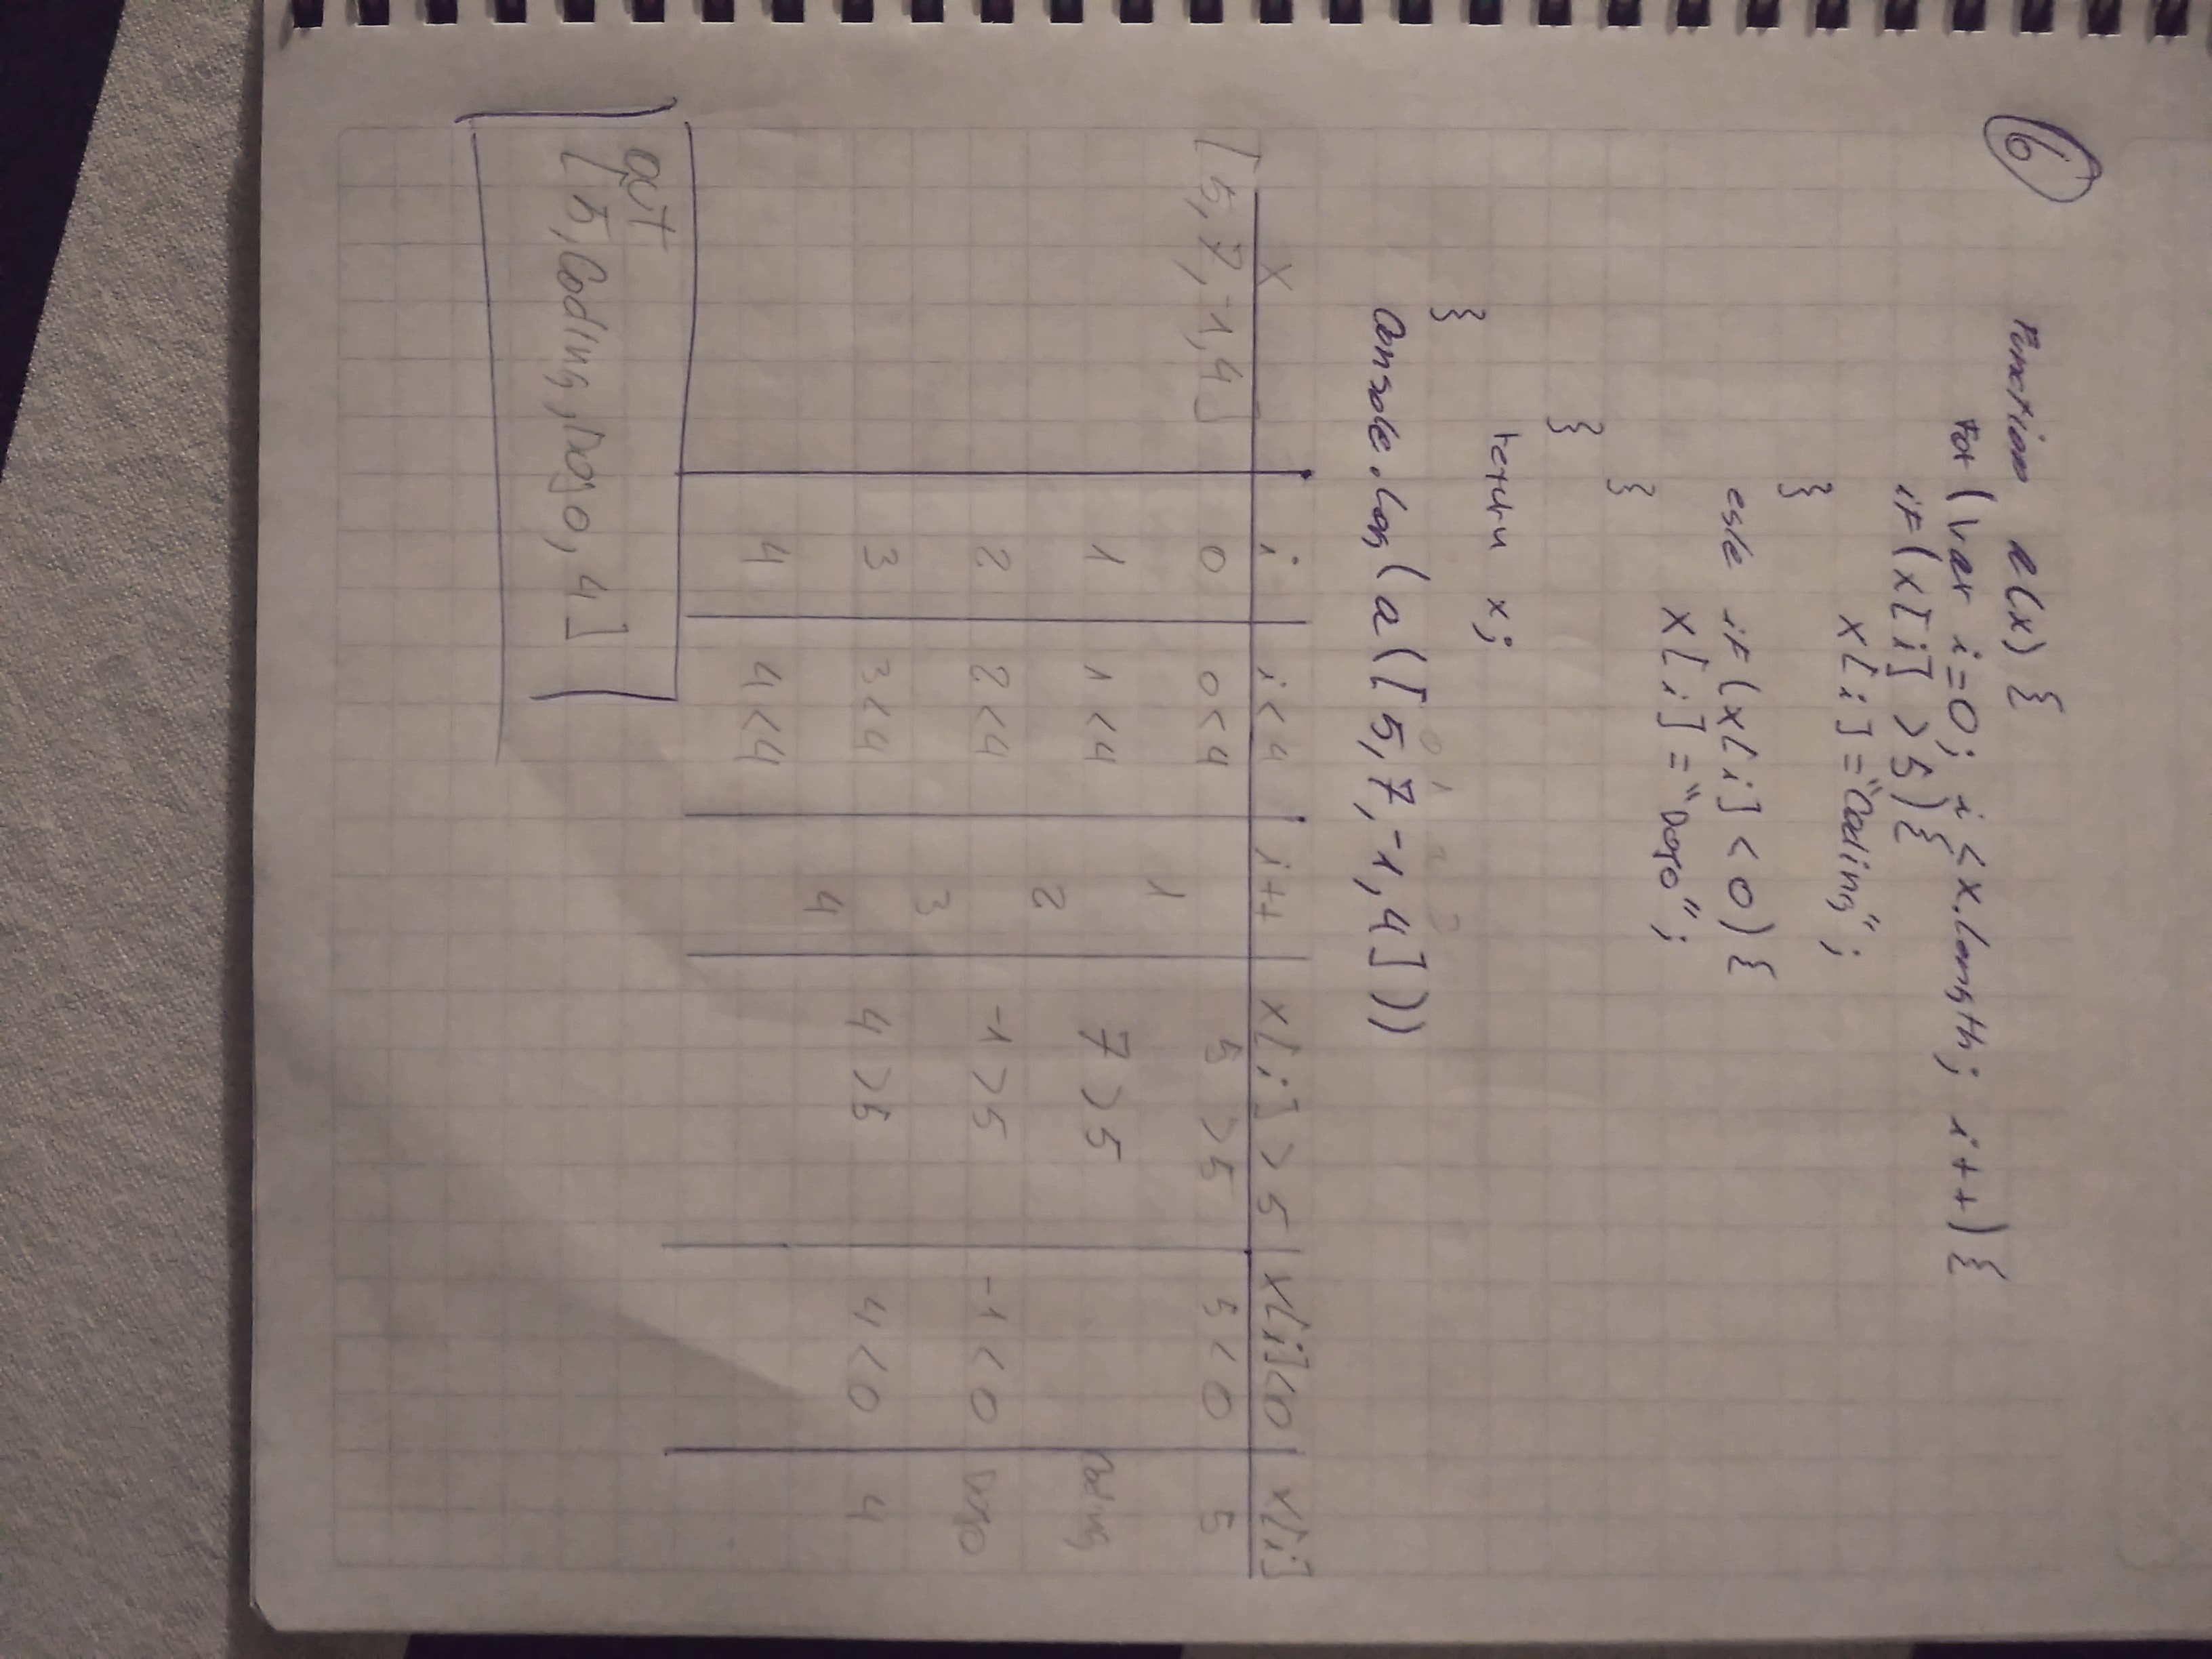 6
Function a(x){
For (var i=0; i<x.length; i++){
if(x[i]>5){
x[i]="Coding";
}
esle if(x[i]<0){
x[i]="Dojo";
}
}
return x;
}
0 1 2 3
Console.log(a([5,7,-1,4]))
x i i<4 i++ x[i]>5 x[i]<0 x[i]
[5,7,-1,4] 0 0<4 5>5 5<0 5
1
1 1<4 7>5 Coding
2
2 2<4 -1>5 -1<0 Dojo
3
3 3<4 4>5 4<0 4
4
4 4<4
out
[5,Coding,Dojo,4]